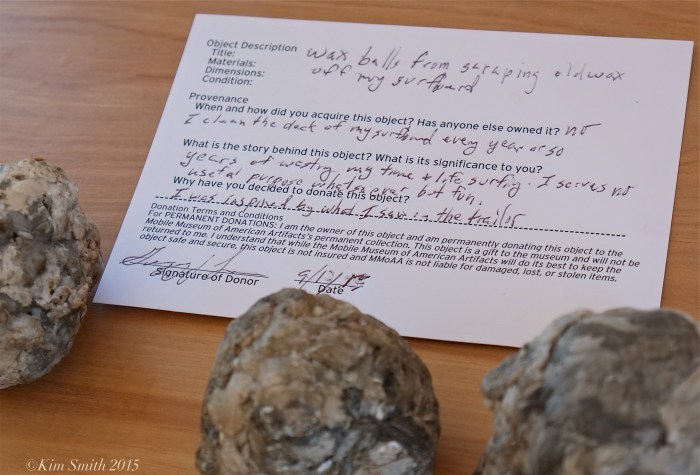 Object Description
Title: wax balls from scraping old wax
Materials: off my surfboard
Dimensions:
Condition:
Provenance
When and how did you acquire this object? Has anyone else owned it? no
I clean the deck of my surfboard every year or so
What is the story behind this object? What is its significance to you?
years of wasting my time & life surfing. I serves no
useful purpose whatsoever but fun.
Why have you decided to donate this object?
I was inspired by what I saw in the trailor
Donation Terms and Conditions
For PERMANENT DONATIONS: I am the owner of this object and am permanently donating this object to the
Mobile Museum of American Artifacts's permanent collection. This object is a gift to the museum and will not be
returned to me. I understand that while the Mobile Museum of American Artifacts will do its best to keep the
object safe and secure, this object is not insured and MMoAA is not liable for damaged, lost, or stolen items.
Signature of Donor
Date
©Kim Smith 2015